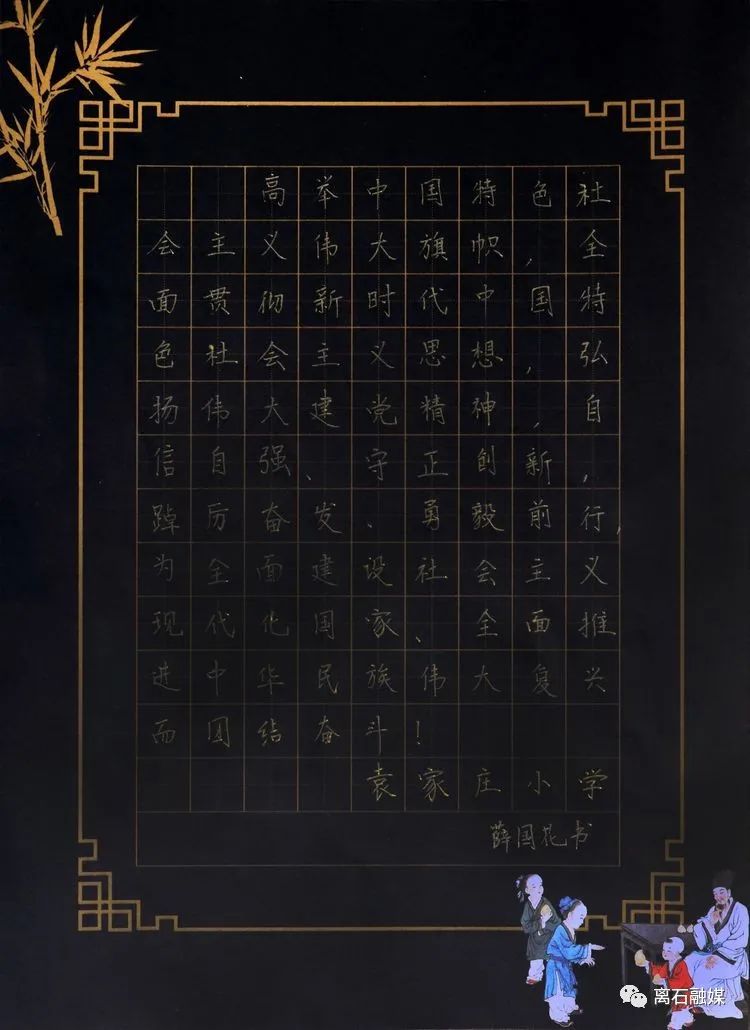 高举中国特色社
会主义伟大旗帜,全
面贯彻新时代中国特
色社会主义思想,弘
扬伟大建党精神,自
信自强、守正创新,
踔厉奋发、勇毅前行,
为全面建设社会主义
现代化国家、全面推
进中华民族伟大复兴
而团结奋斗!
袁家庄小学
薛国花书
离石融媒